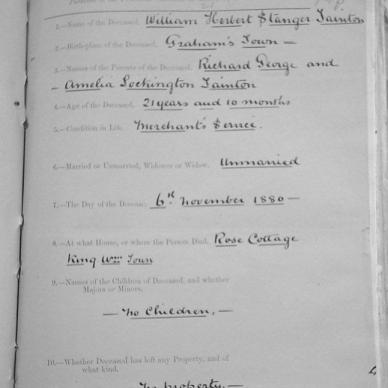 1.—Name of the Deceased, William Herbert Stanger Tainton
2.—Birthplace of the Deceased, Graham's Town —
3.—Names of the Parents of the Deceased, Richard George and
— Amelia Lockington Tainton
4.—Age of the Deceased, 21 years and 10 months
5.—Condition in Life, Merchant's
6.—Married or Unmarried, Widower or Widow, Unmarried
7.—The Day of the Decease, 6th November 1880 —
8.—At what House, or where the Person Died, Rose Cottage
King Wm Town
9.—Names of the Children of Deceased, and whether
Majors or Minors,
— No Children, —
10.—Whether Deceased has left any Property, and of
what kind,
No property. —